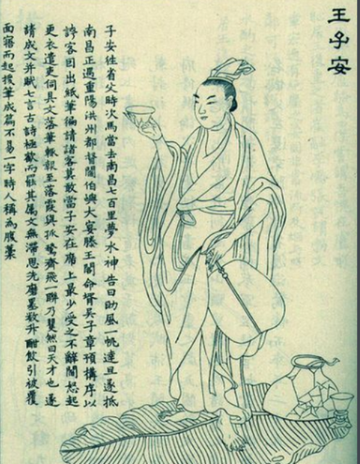 王子安
子安往省父時次馬當去南昌七百里夢水神告曰助風一帆達旦遂抵
南昌正遇重陽洪州都督閻伯嶼大宴滕王閣命婿吳子章預構序以
誇客因出紙筆徧請諸客莫敢當子安在席上最少受之不辭閻怒起
更衣遣吏伺其文落筆輒報至落霞與孤鶩齊飛一聯乃矍然曰天才也遂
請成文并賦七言古詩極歡而罷其屬文無滯思先磨墨數升酣飲引被覆
面寤而起援筆成篇不易一字時人稱為腹稾